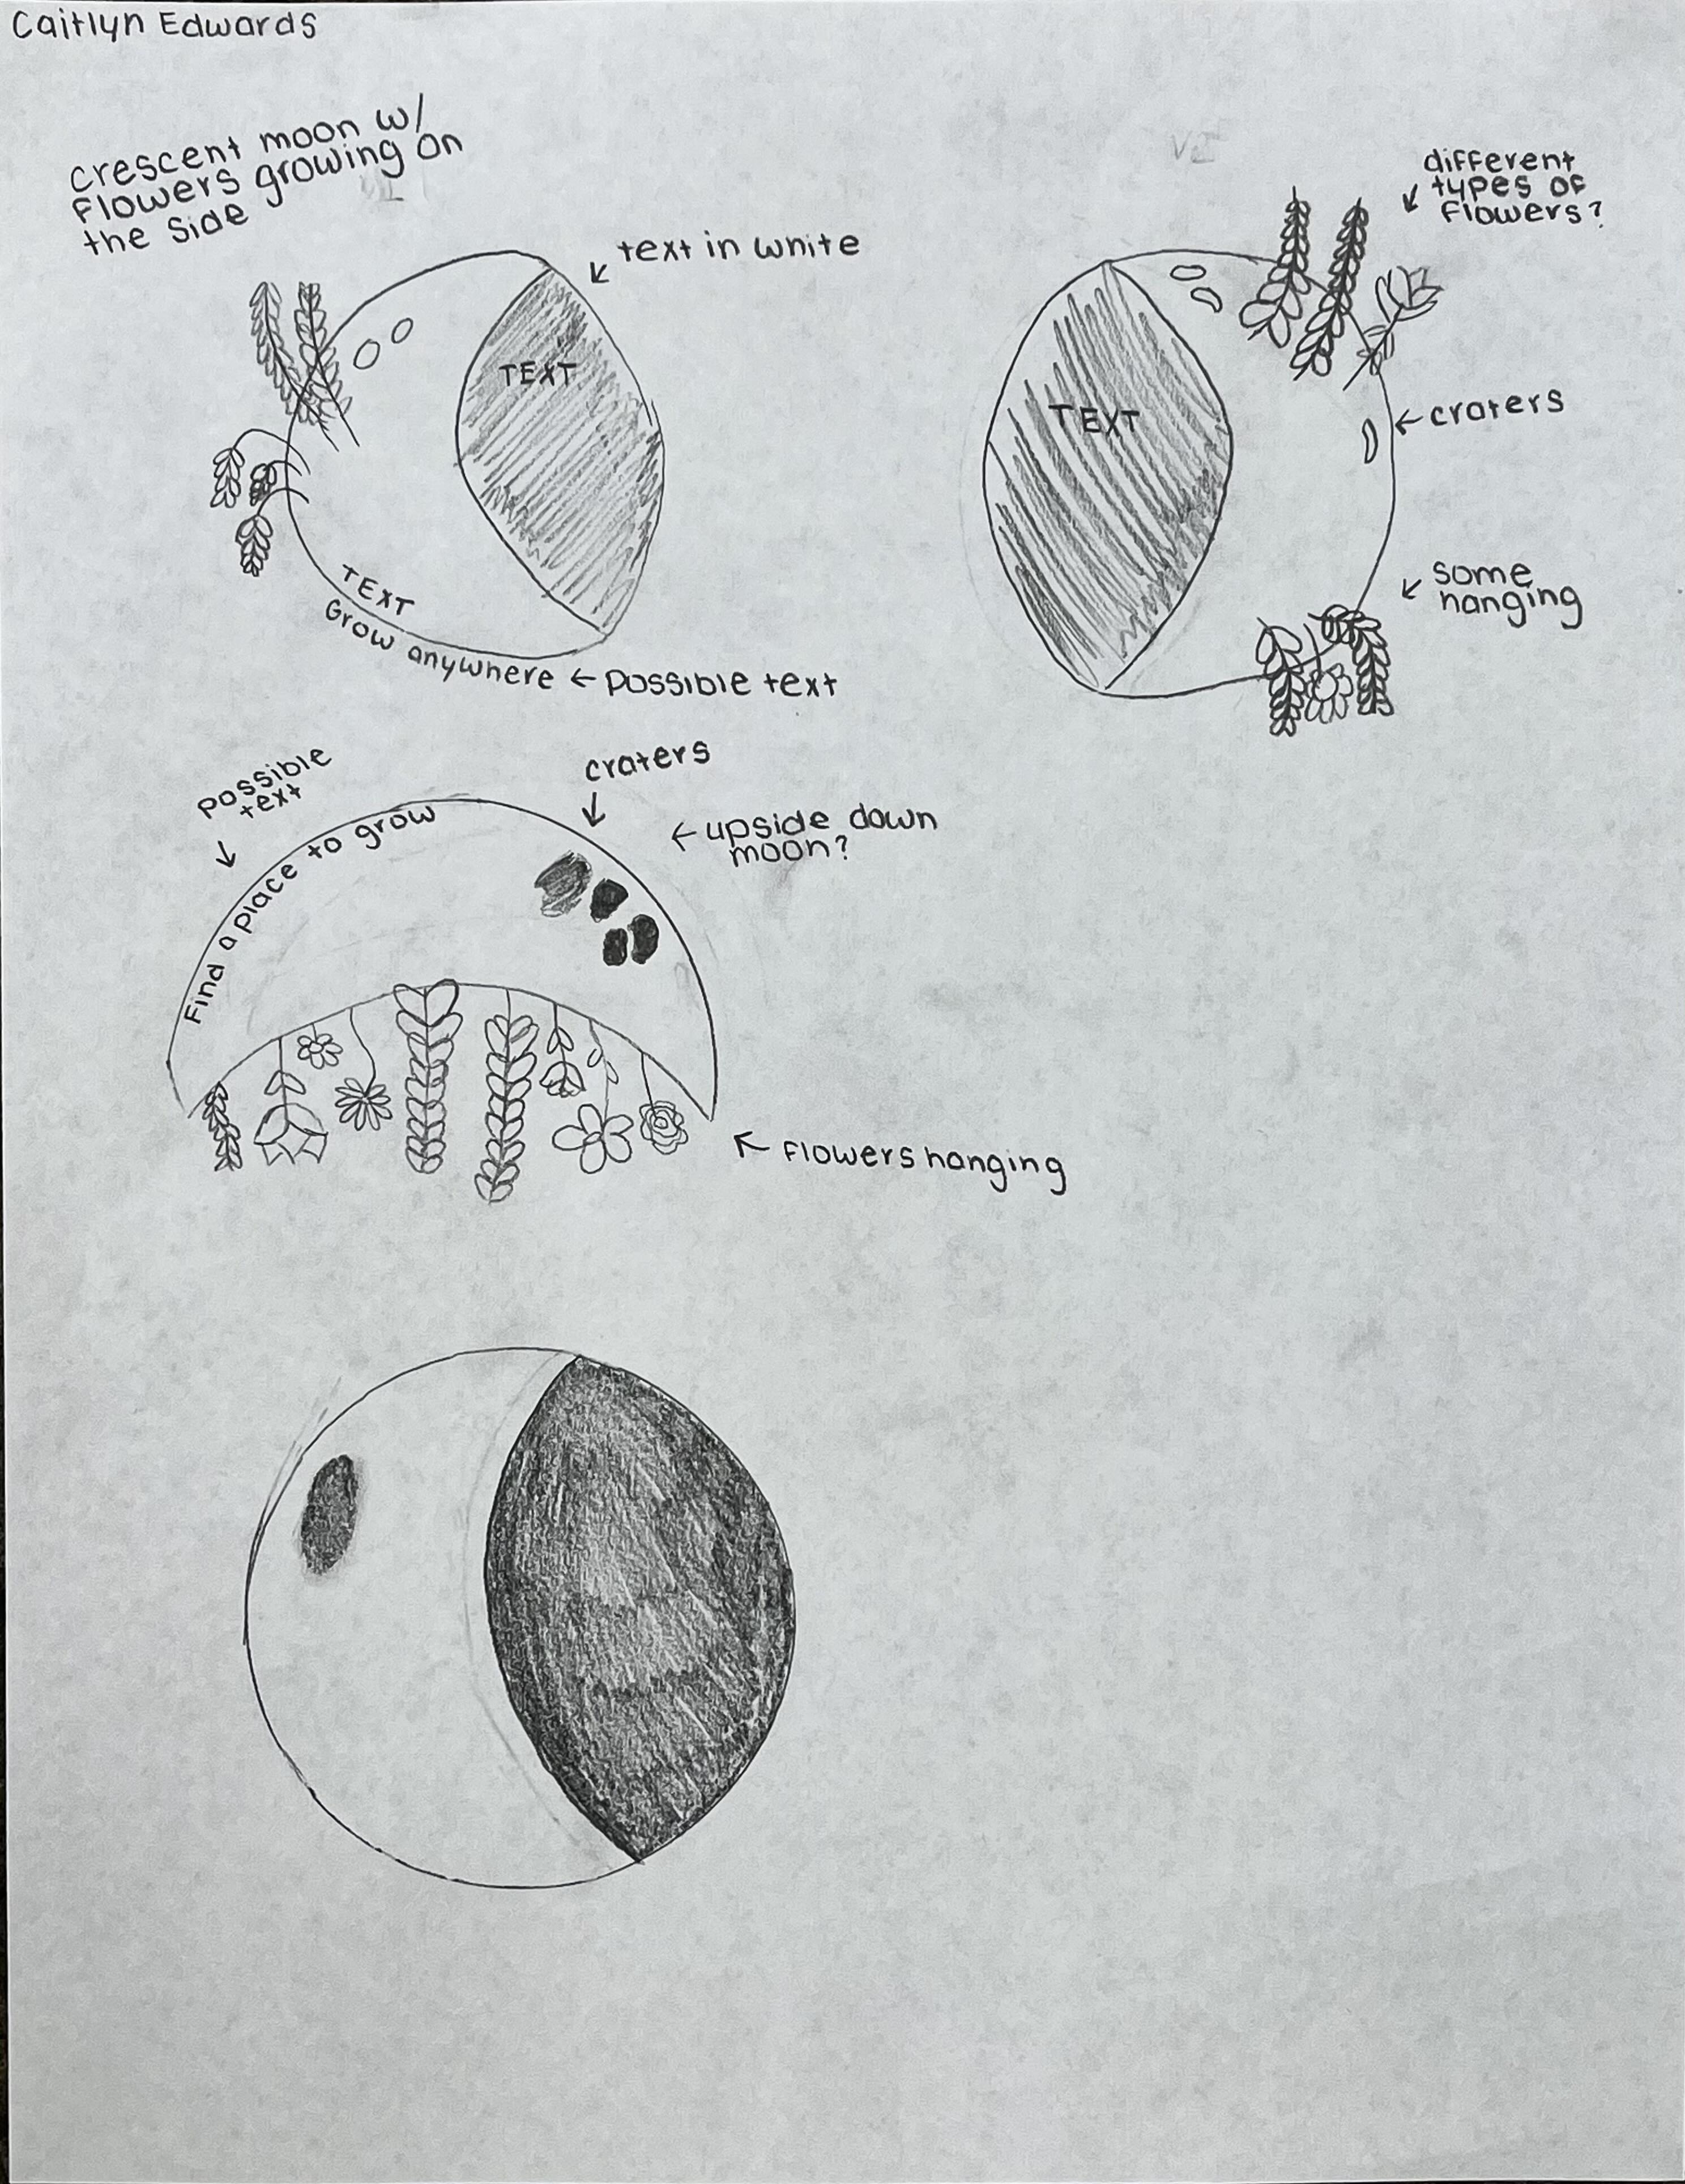 Caitlyn Edwards
crescent moon w/
flowers growing on
the side
text in white
TEXT
TEXT
Grow anywhere ← possible text
V2
different
types of
flowers?
TEXT
← craters
some
hanging
possible
text
Find a place to grow
craters
← upside down
moon?
flowers hanging